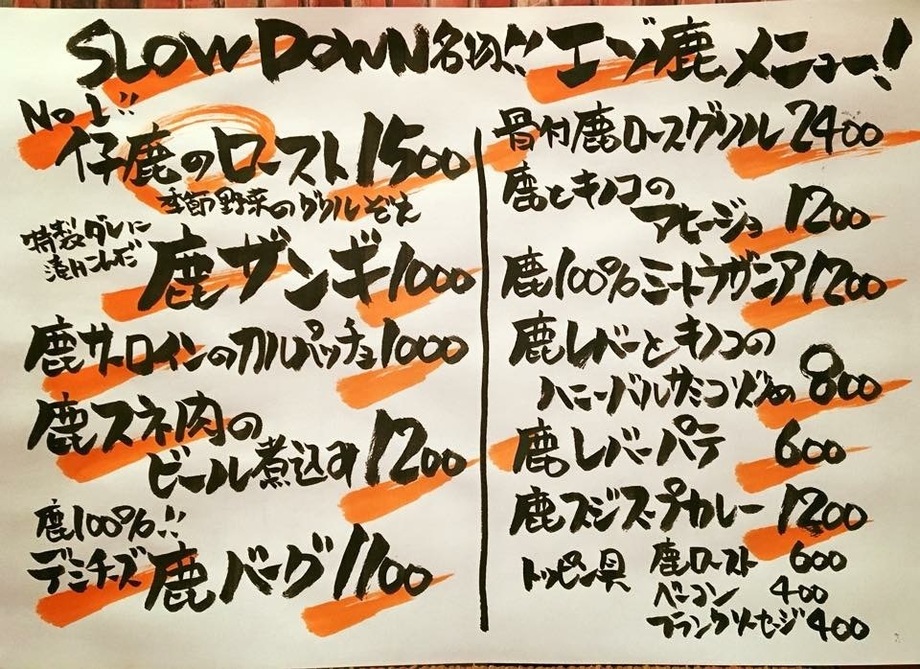 SLOW DOWN名物!! エゾ鹿メニュー!
No1!!
仔鹿のロースト 1500
季節野菜のグリルぞえ
特製ダレに
漬けこんだ
鹿ザンギ 1000
鹿サーロインのカルパッチョ 1000
鹿スネ肉の
ビール煮込み 1200
鹿100%!!
デミチーズ鹿バーグ 1100
骨付鹿ロースグリル 2400
鹿とキノコの
アヒージョ 1200
鹿100%ミートラザニア 1200
鹿レバーとキノコの
ハニーバルサミコ炒め 800
鹿レバーパテ 600
鹿スジスープカレー 1200
トッピング具 鹿ロースト 600
ベーコン 400
フランクソーセージ 400